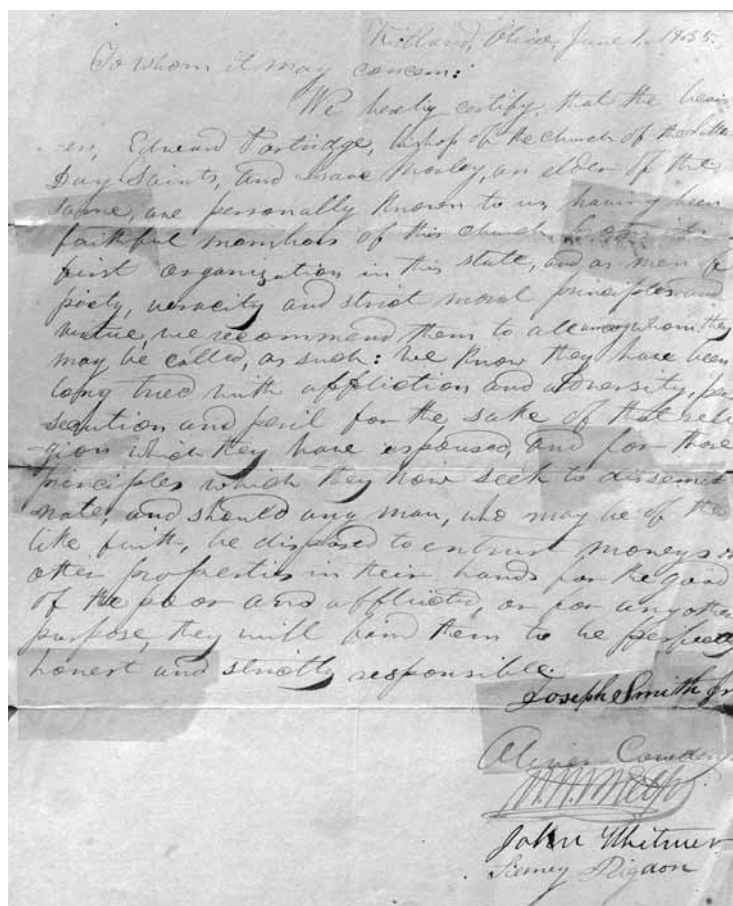 Kirtland, Ohio, June 1, 1835.
To whom it may concern:
We hereby certify, that the bear-
ers, Edward Partridge, bishop of the church of the Latter
Day Saints, and Isaac Morley, an elder of the
same, are personally known to us, having been
faithful members of this church from its
first organization in this state, and as men of
piety, veracity and strict moral principles and
virtue, we recommend them to all among whom they
may be called, as such: we know they have been
long tried with affliction and adversity, per
secution and peril for the sake of that reli
-gion which they have espoused, and for those
principles which they now seek to dissemi
nate, and should any man, who may be of the
like faith, be disposed to entrust moneys or
other properties in their hands for the good
of the poor and afflicted, or for any other
purpose, they will find them to be perfectly
honest and strictly responsible.
Joseph Smith Jr
Oliver Cowdery
W. W. Phelps
John Whitmer
Sidney Rigdon